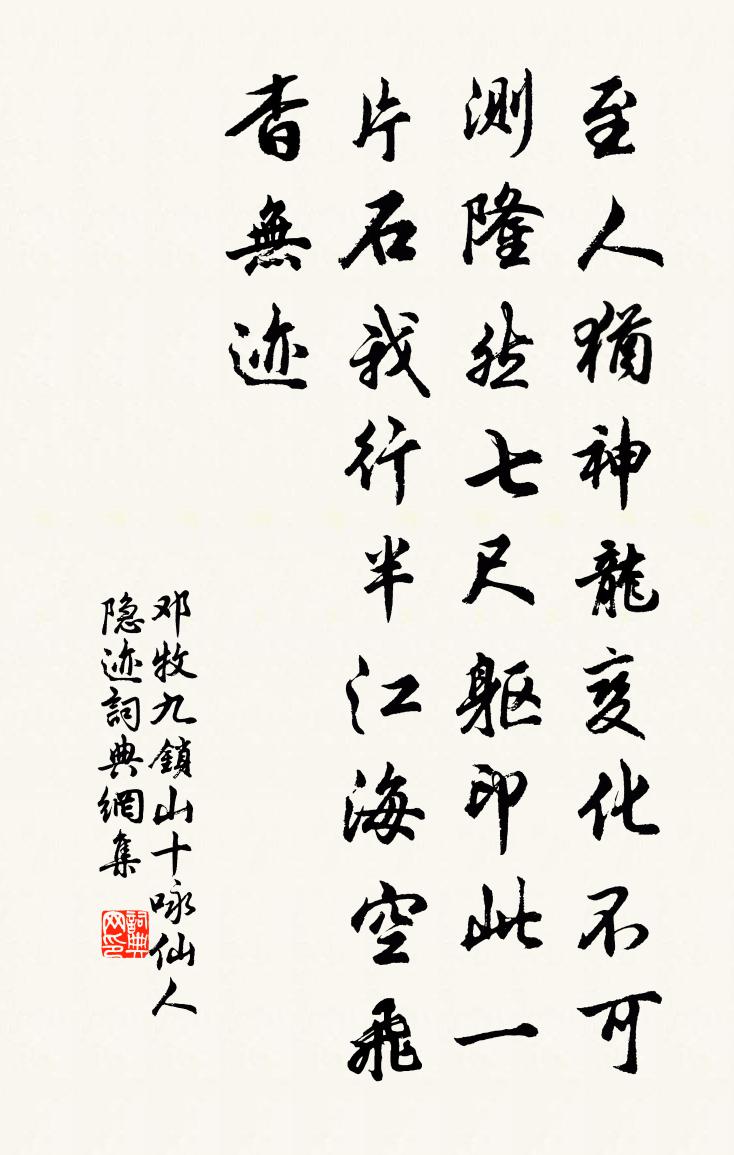 至人猶神龍変化不可
測隆然七尺軀印此一
片石我行半江海空飛
杳無迹
邓牧九鎖山十咏仙人
隐迹詞典網集
詞典网印